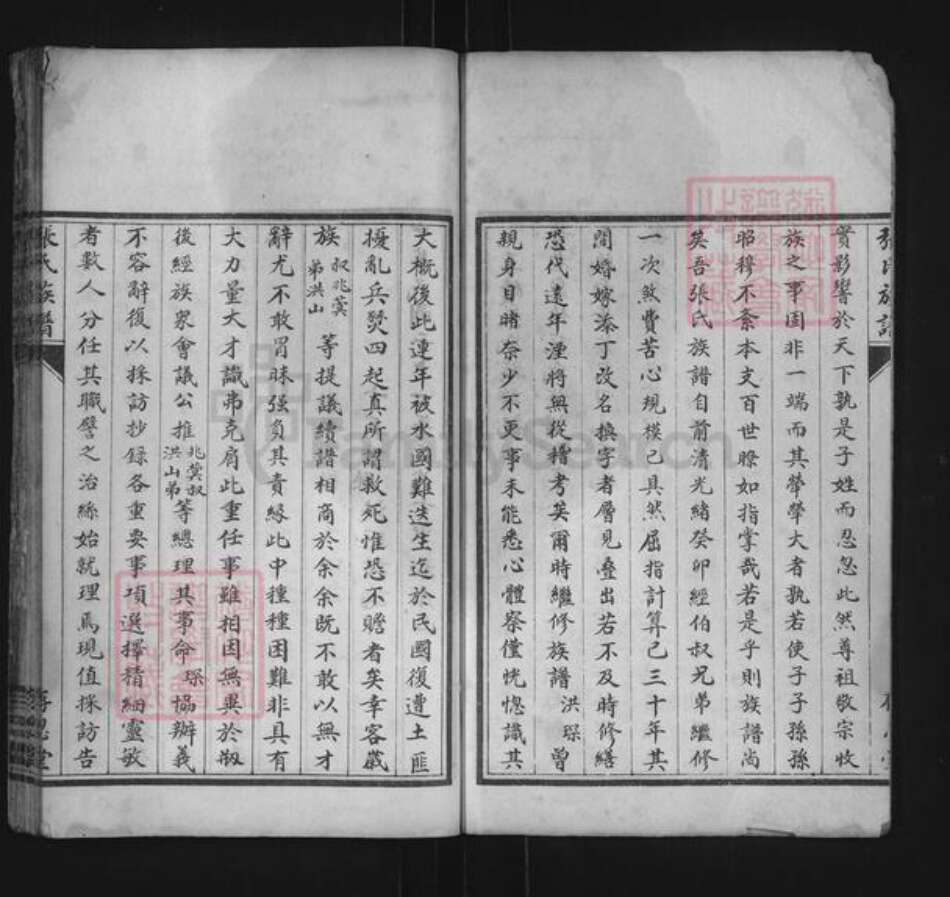 張氏族譜
實影響於天下孰是子姓而忍忽此然尊祖敬宗收
族之事固非一端而其犖犖大者孰若使子子孫孫
昭穆不紊本支百世瞭如指掌哉若是乎則族譜尚
矣吾張氏族譜自前清光緒癸卯經伯叔兄弟繼修
一次煞費苦心規模已具然屈指計算已三十年其
間婚嫁添丁改名換字者層見疊出若不及時修繕
恐代遠年湮將無從稽考矣爾時繼修族譜洪琛曾
親身目睹奈少不更事未能悉心體察僅恍惚識其
大概後此連年被水國難迭生迄於民國復遭土匪
擾亂兵燹四起真所謂救死惟恐不贍者矣幸客歲
族叔兆蓂弟洪山等提議續譜相商於余余既不敢以無才
辭尤不敢冒昧强負其責緣此中種種困難非具有
大力量大才識弗克肩此重任事雖相因無異於剏
後經族眾會議公推兆蓂叔洪山弟等總理其事命琛協辦義
不容辭復以採訪抄錄各重要事項選擇精細靈敏
者數人分任其職譬之治絲始就理焉現值採訪告
張氏族譜
FamilySearch